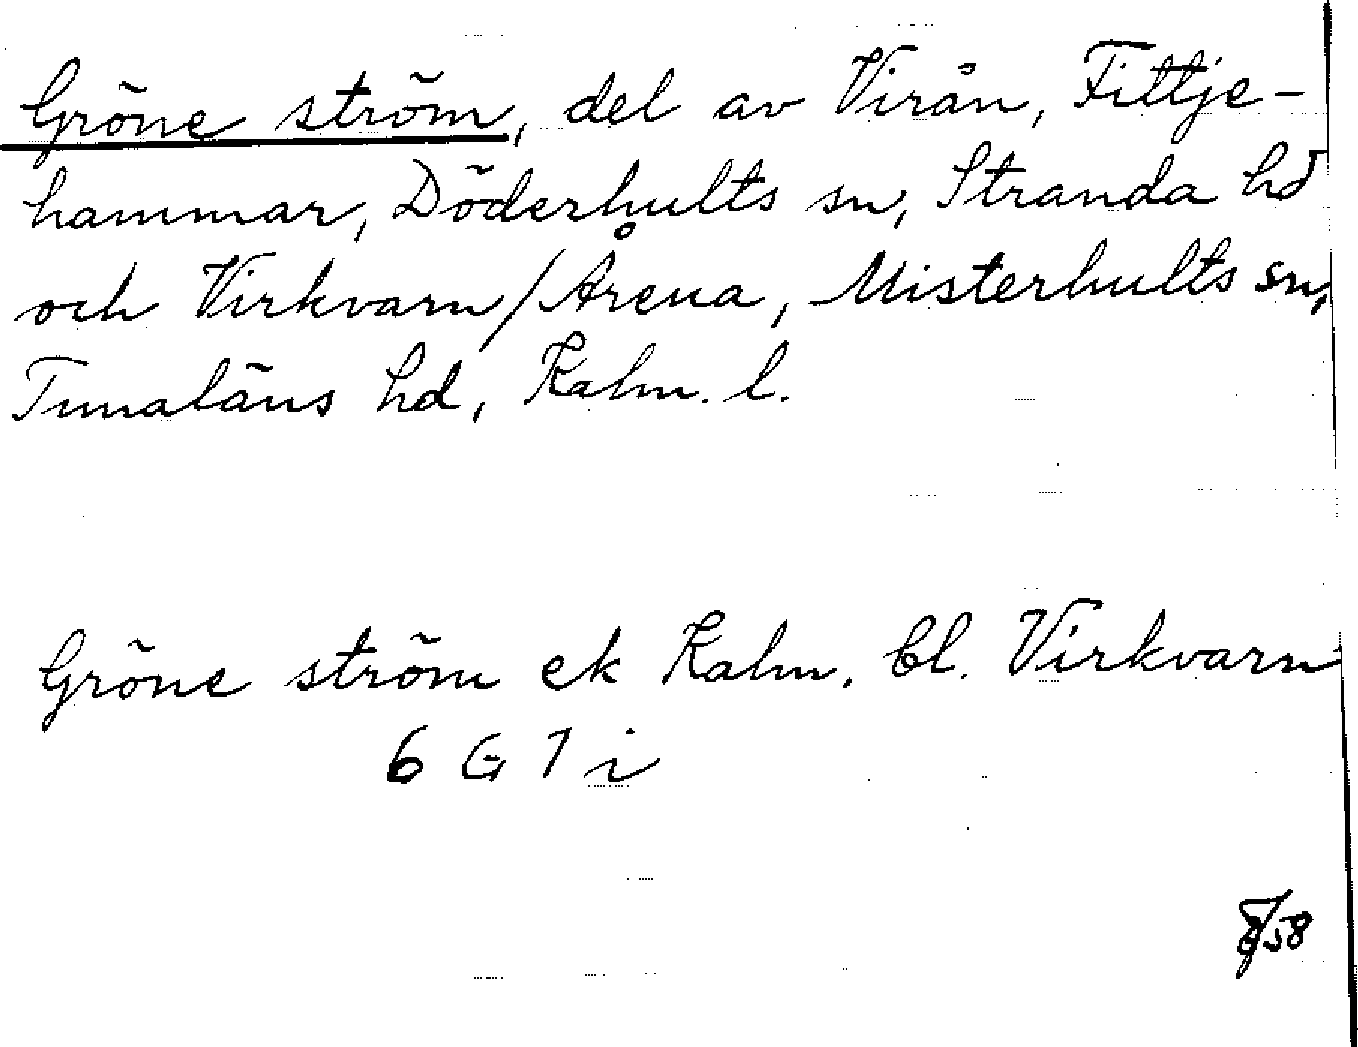 Gröne ström, del av Virån, Fittje-
hammar, Döderhults sn, Stranda hd
och Virkvarn/Årena, Misterhults sn,
Tunaläns hd, Kalm. l.
Gröne ström ek Kalm. bl. Virkvarn
6 G 7 i
58